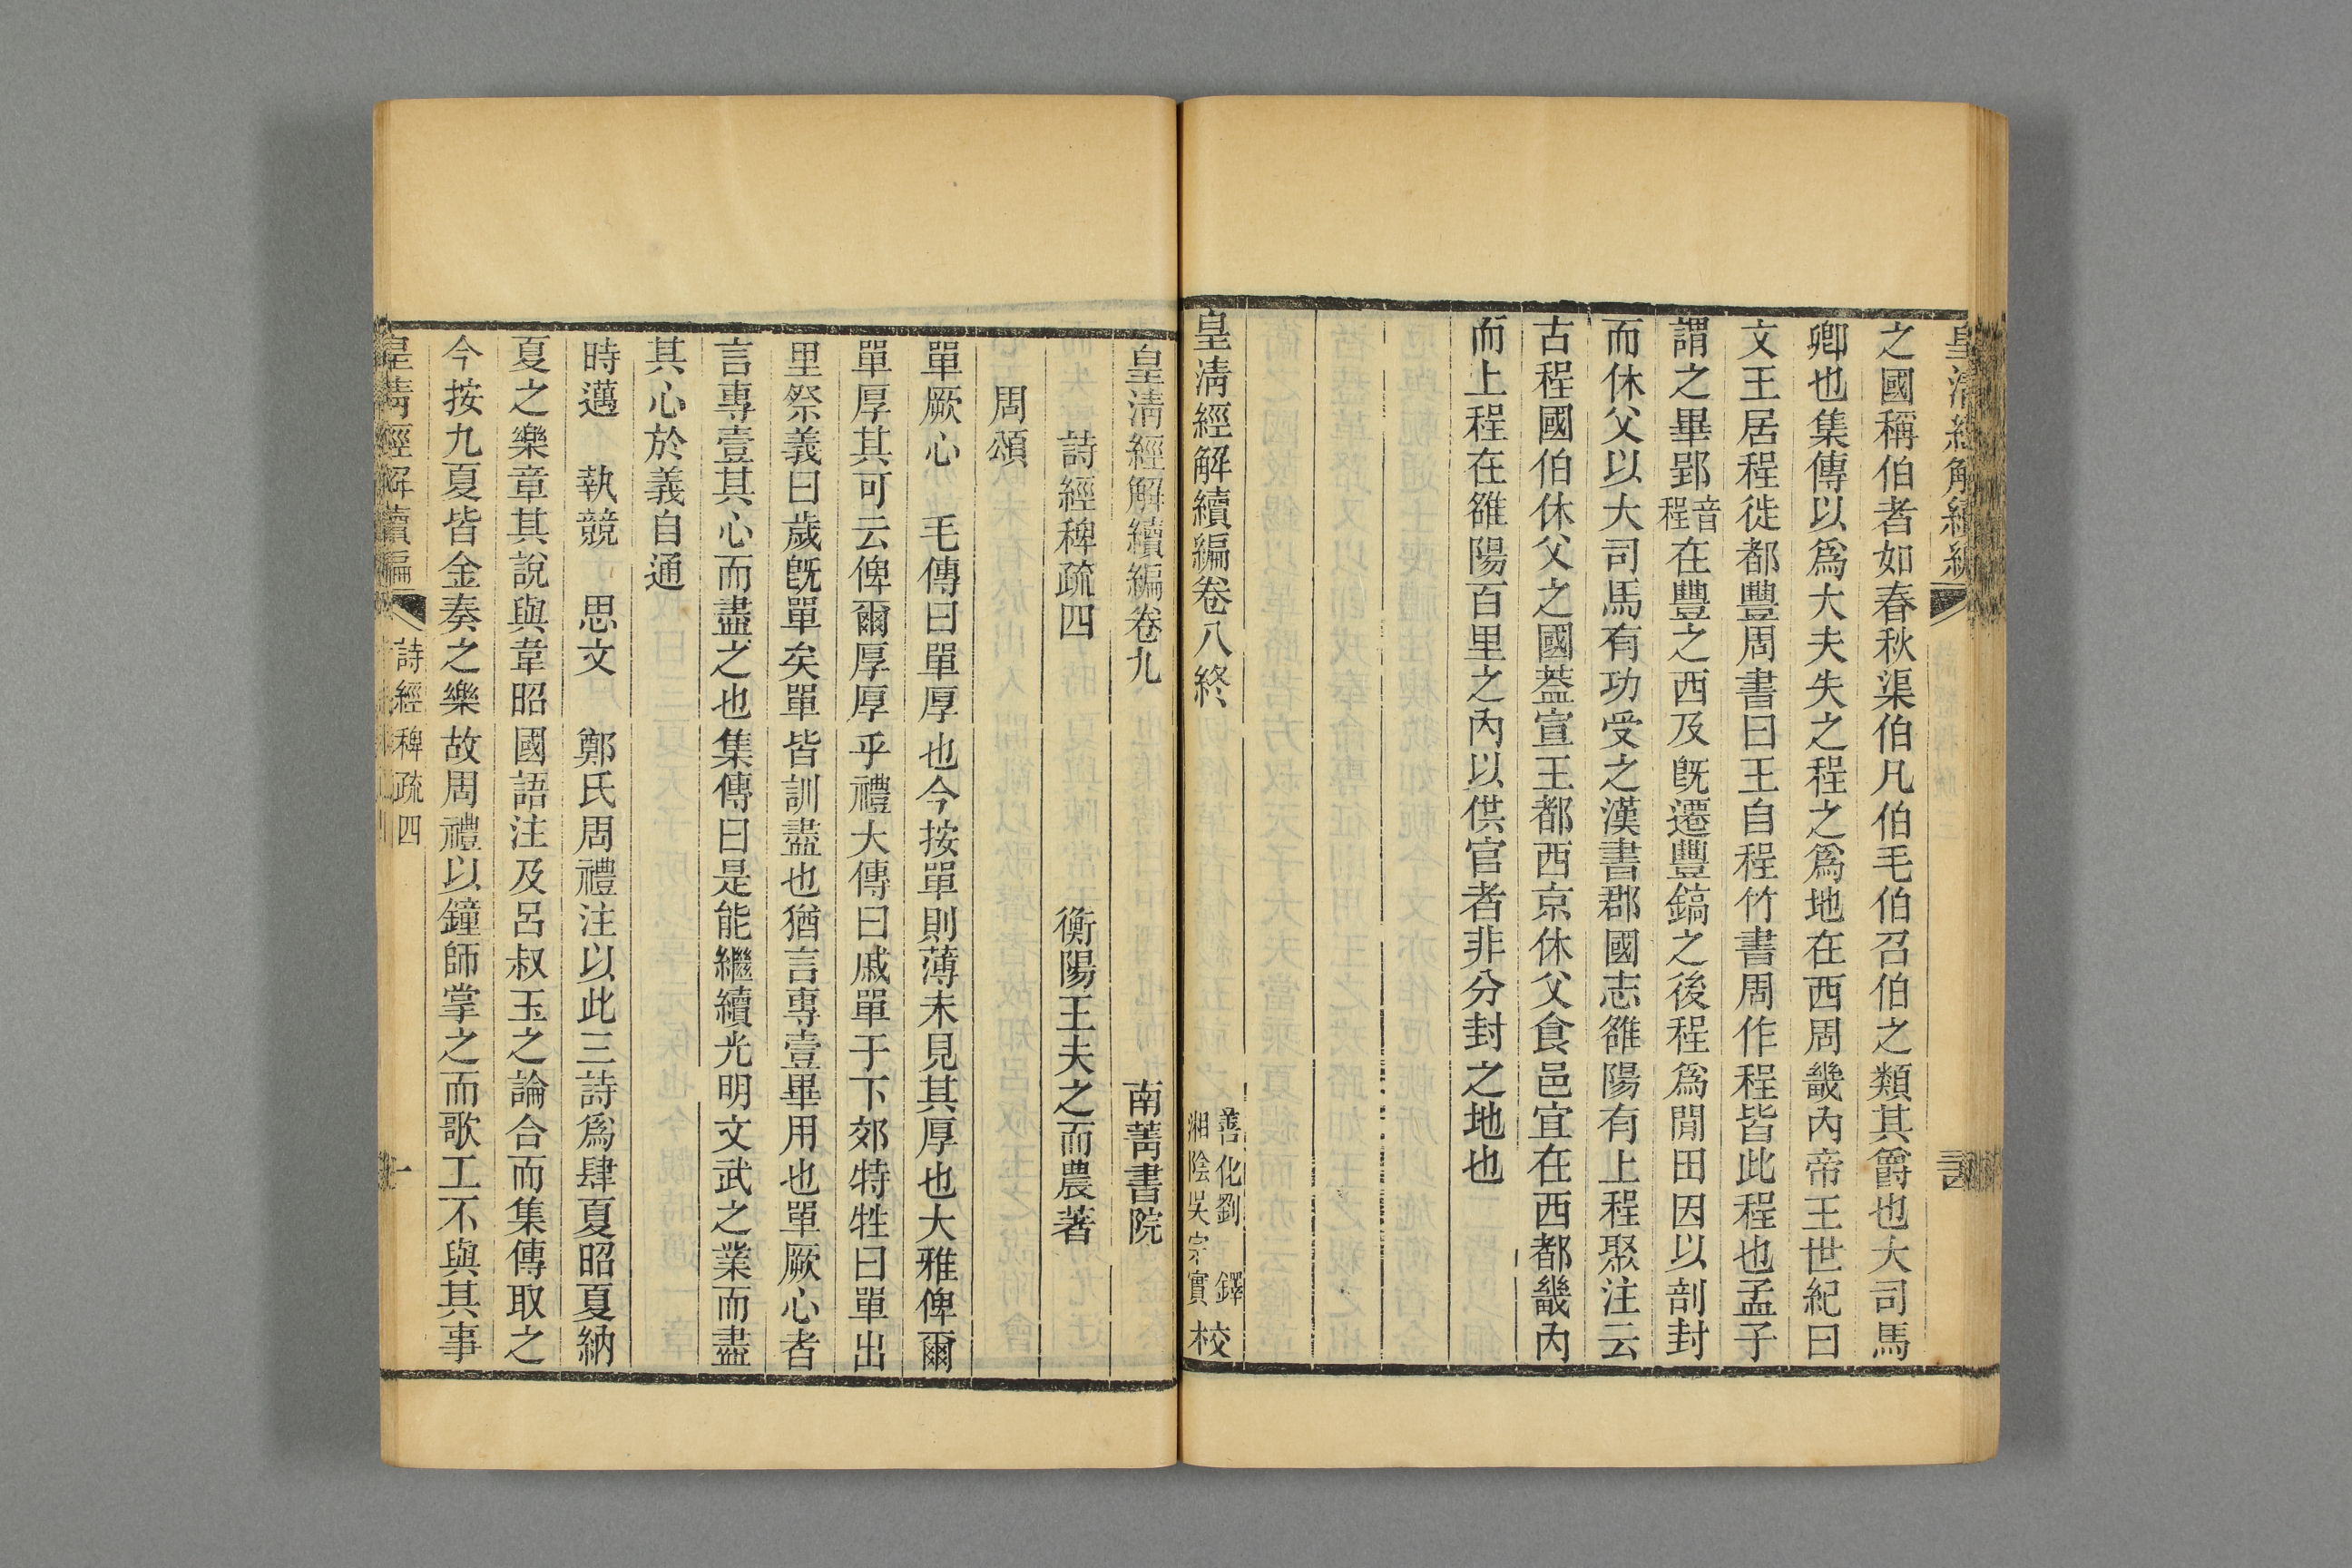 之國稱伯者如春秋渠伯凡伯毛伯召伯之類其爵也大司馬
卿也集傳以爲大夫失之程之爲地在西周畿內帝王世紀曰
文王居程徙都豐周書曰王自程竹書周作程皆此程也孟子
謂之畢郢音程在豐之西及旣遷豐鎬之後程爲閒田因以剖封
而休父以大司馬有功受之漢書郡國志雒陽有上程聚注云
古程國伯休父之國葢宣王都西京休父食邑宜在西都畿內
而上程在雒陽百里之內以供官者非分封之地也
皇淸經解續編卷八終
善化劉鐸
湘陰吳宗實
校
皇淸經解續編卷九
南菁書院
詩經稗疏四
衡陽王夫之而農著
周頌
單厥心　毛傳曰單厚也今按單則薄未見其厚也大雅俾爾
單厚其可云俾爾厚厚乎禮大傳曰戚單于下郊特牲曰單出
里祭義曰歲旣單矣單皆訓盡也猶言專壹畢用也單厥心者
言專壹其心而盡之也集傳曰是能繼續光明文武之業而盡
其心於義自通
時邁　執競　思文　鄭氏周禮注以此三詩爲肆夏昭夏納
夏之樂章其說與韋昭國語注及呂叔玉之論合而集傳取之
今按九夏皆金奏之樂故周禮以鐘師掌之而歌工不與其事
皇淸經解續編
詩經稗疏四
一